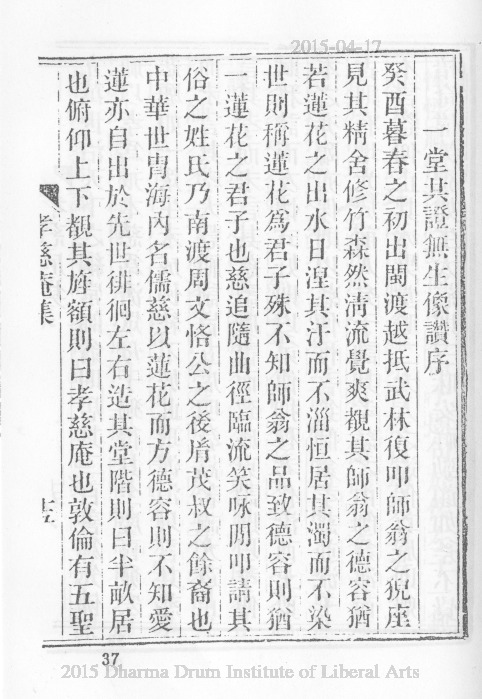 2015-04-17
一堂共證無生像讚序
癸酉暮春之初出閩渡越抵武林復叩師翁之猊座
見其精舍修竹森然淸流覺爽覩其師翁之德容猶
若蓮花之出水日湼其汙而不淄恒居其濁而不染
世則稱蓮花爲君子殊不知師翁之品致德容則猶
一蓮花之君子也慈追隨曲徑臨流笑咏閒叩請其
俗之姓氏乃南渡周文恪公之後㞐茂叔之餘裔也
中華世胄海內名儒慈以蓮花而方德容則不知愛
蓮亦自出於先世徘徊左右造其堂階則曰半畝居
也俯仰上下覩其旌額則曰孝慈庵也敦倫有五聖
孝慈庵集
37
2015 Dharma Drum Institute of Liberal Arts